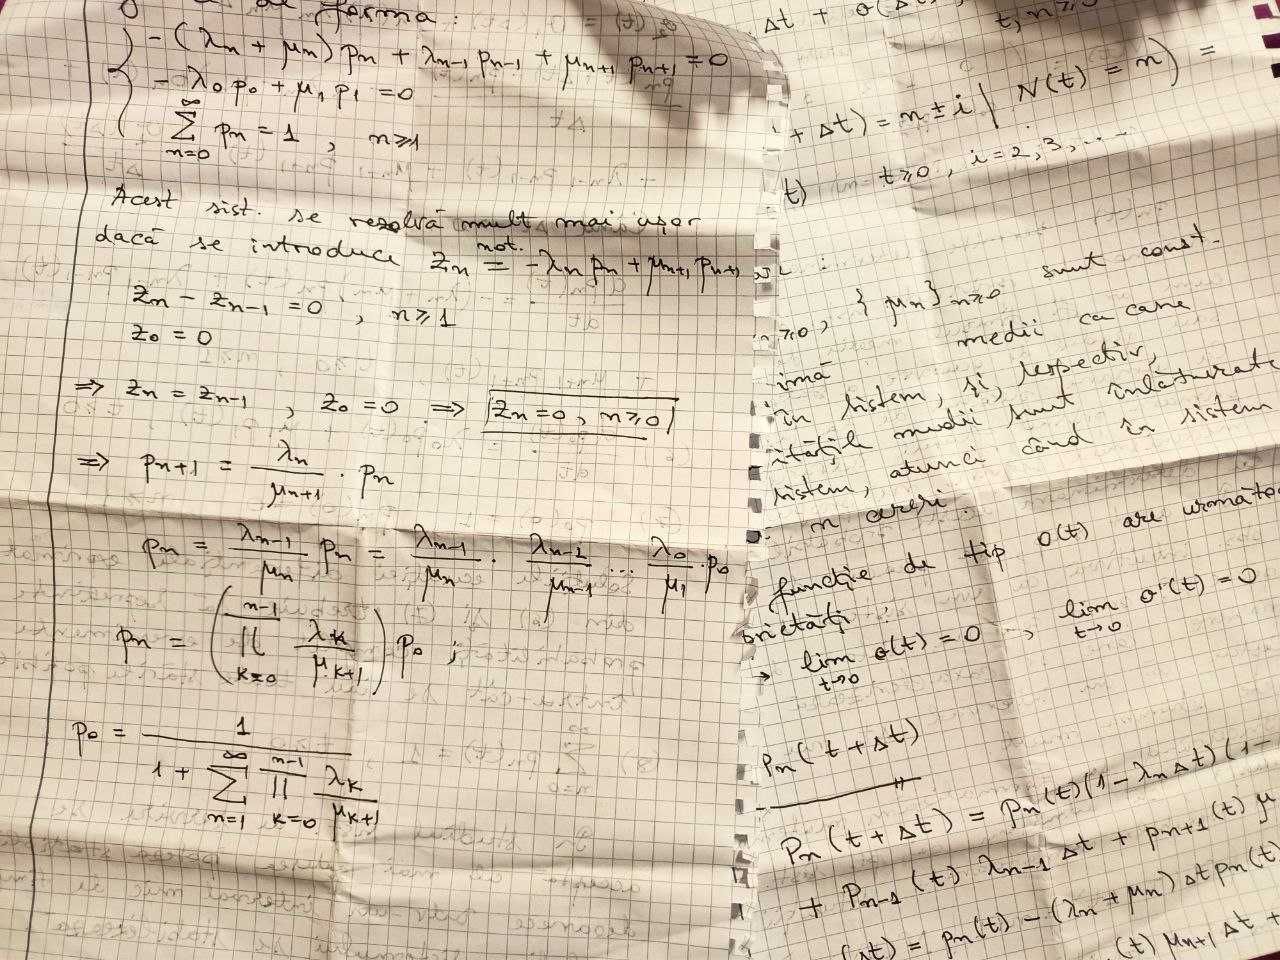 de forma:
- (λn + μn) pn + λn-1 pn-1 + μn+1 pn+1 = 0
- λ0 p0 + μ1 p1 = 0
∞
∑ pn = 1 , n ⩾ 1
n=0
Acest sist. se rezolvă mult mai ușor
dacă se introduce zn not.= -λn pn + μn+1 pn+1
zn - zn-1 = 0 , n ⩾ 1
z0 = 0
=> zn = zn-1 , z0 = 0 => zn = 0 , n ⩾ 0
=> pn+1 = λn/μn+1 · pn
pn = λn-1/μn pn = λn-1/μn · λn-2/μn-1 ... λ0/μ1 · p0
pn = ( n-1 ∏ k=0 λk/μk+1 ) p0 ;
p0 = 1/(1 + ∞ ∑ n=1 n-1 ∏ k=0 λk/μk+1)
Δt +
t, n ⩾
+ Δt) = n ± i | N(t) = n) =
t) t ⩾ 0 , i = 2, 3, ...
⩾ 0, {μn} n ⩾ 0 sunt const.
medii cu care
imă
în sistem, și, respectiv,
itățile medii sunt înlăturate
sistem, atunci când în sistem
n cereri.
funcție de tip o(t) are următoa
prietăți:
→ lim t→0 o(t) = 0 , lim t→0 o'(t) = 0
pn(t + Δt)
pn(t + Δt) = pn(t)(1 - λnΔt)(1 -
+ pn-1(t) λn-1 Δt + pn+1(t) μ
Δt) = pn(t) - (λn + μn) Δt pn(t)
(t) μn+1 Δt +